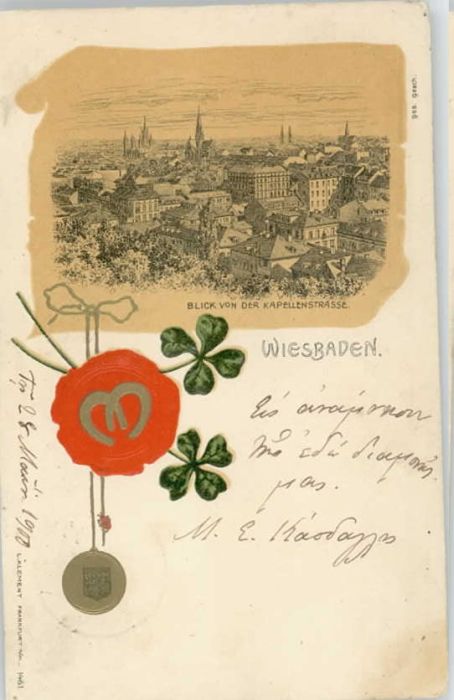 Ges. Gesch.
BLICK VON DER KAPELLENSTRASSE.
WIESBADEN.
Εἰς ἀνάμνησιν
τῆς ἐδῶ διαμονῆς
μας.
Μ. Ε. Κάσδαγλης
Τῇ 28 Μαΐου 1900
L. KLEMENT FRANKFURT A/M. - 1461